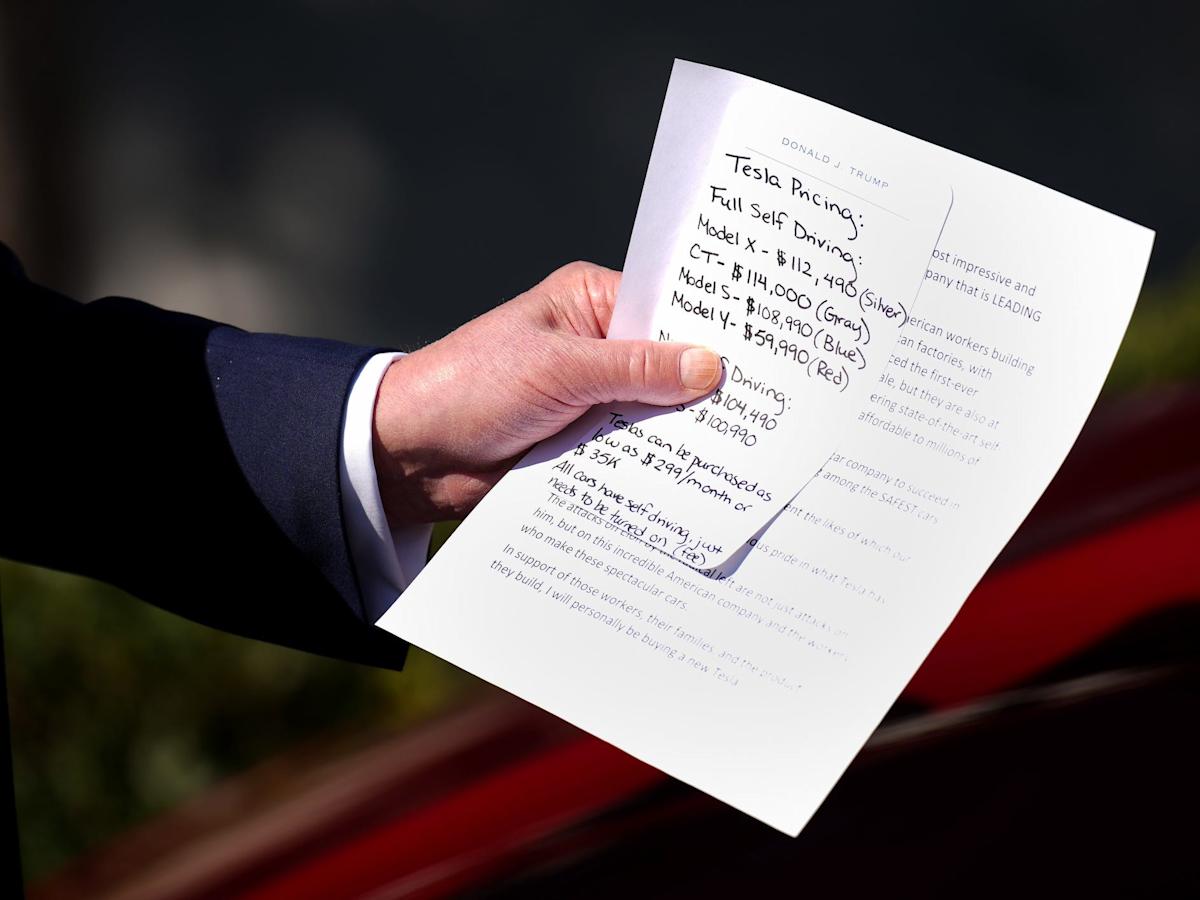 DONALD J. TRUMP
Tesla Pricing:
Full Self Driving:
Model X - $112,490 (Silver)
CT - $114,000 (Gray)
Model S - $108,990 (Blue)
Model Y - $59,990 (Red)
Driving:
$104,490
S - $100,990
Teslas can be purchased as
low as $299/month or
$35K
All cars have self driving, just
needs to be turned on (fee)
ost impressive and
pany that is LEADING
erican workers building
can factories, with
ced the first-ever
ale, but they are also at
ering state-of-the-art self-
affordable to millions of
ar company to succeed in
among the SAFEST cars
ent the likes of which our
ous pride in what Tesla has
The attacks on left are not just attacks on
him, but on this incredible American company and the workers
who make these spectacular cars.
In support of those workers, their families, and the product
they build, I will personally be buying a new Tesla